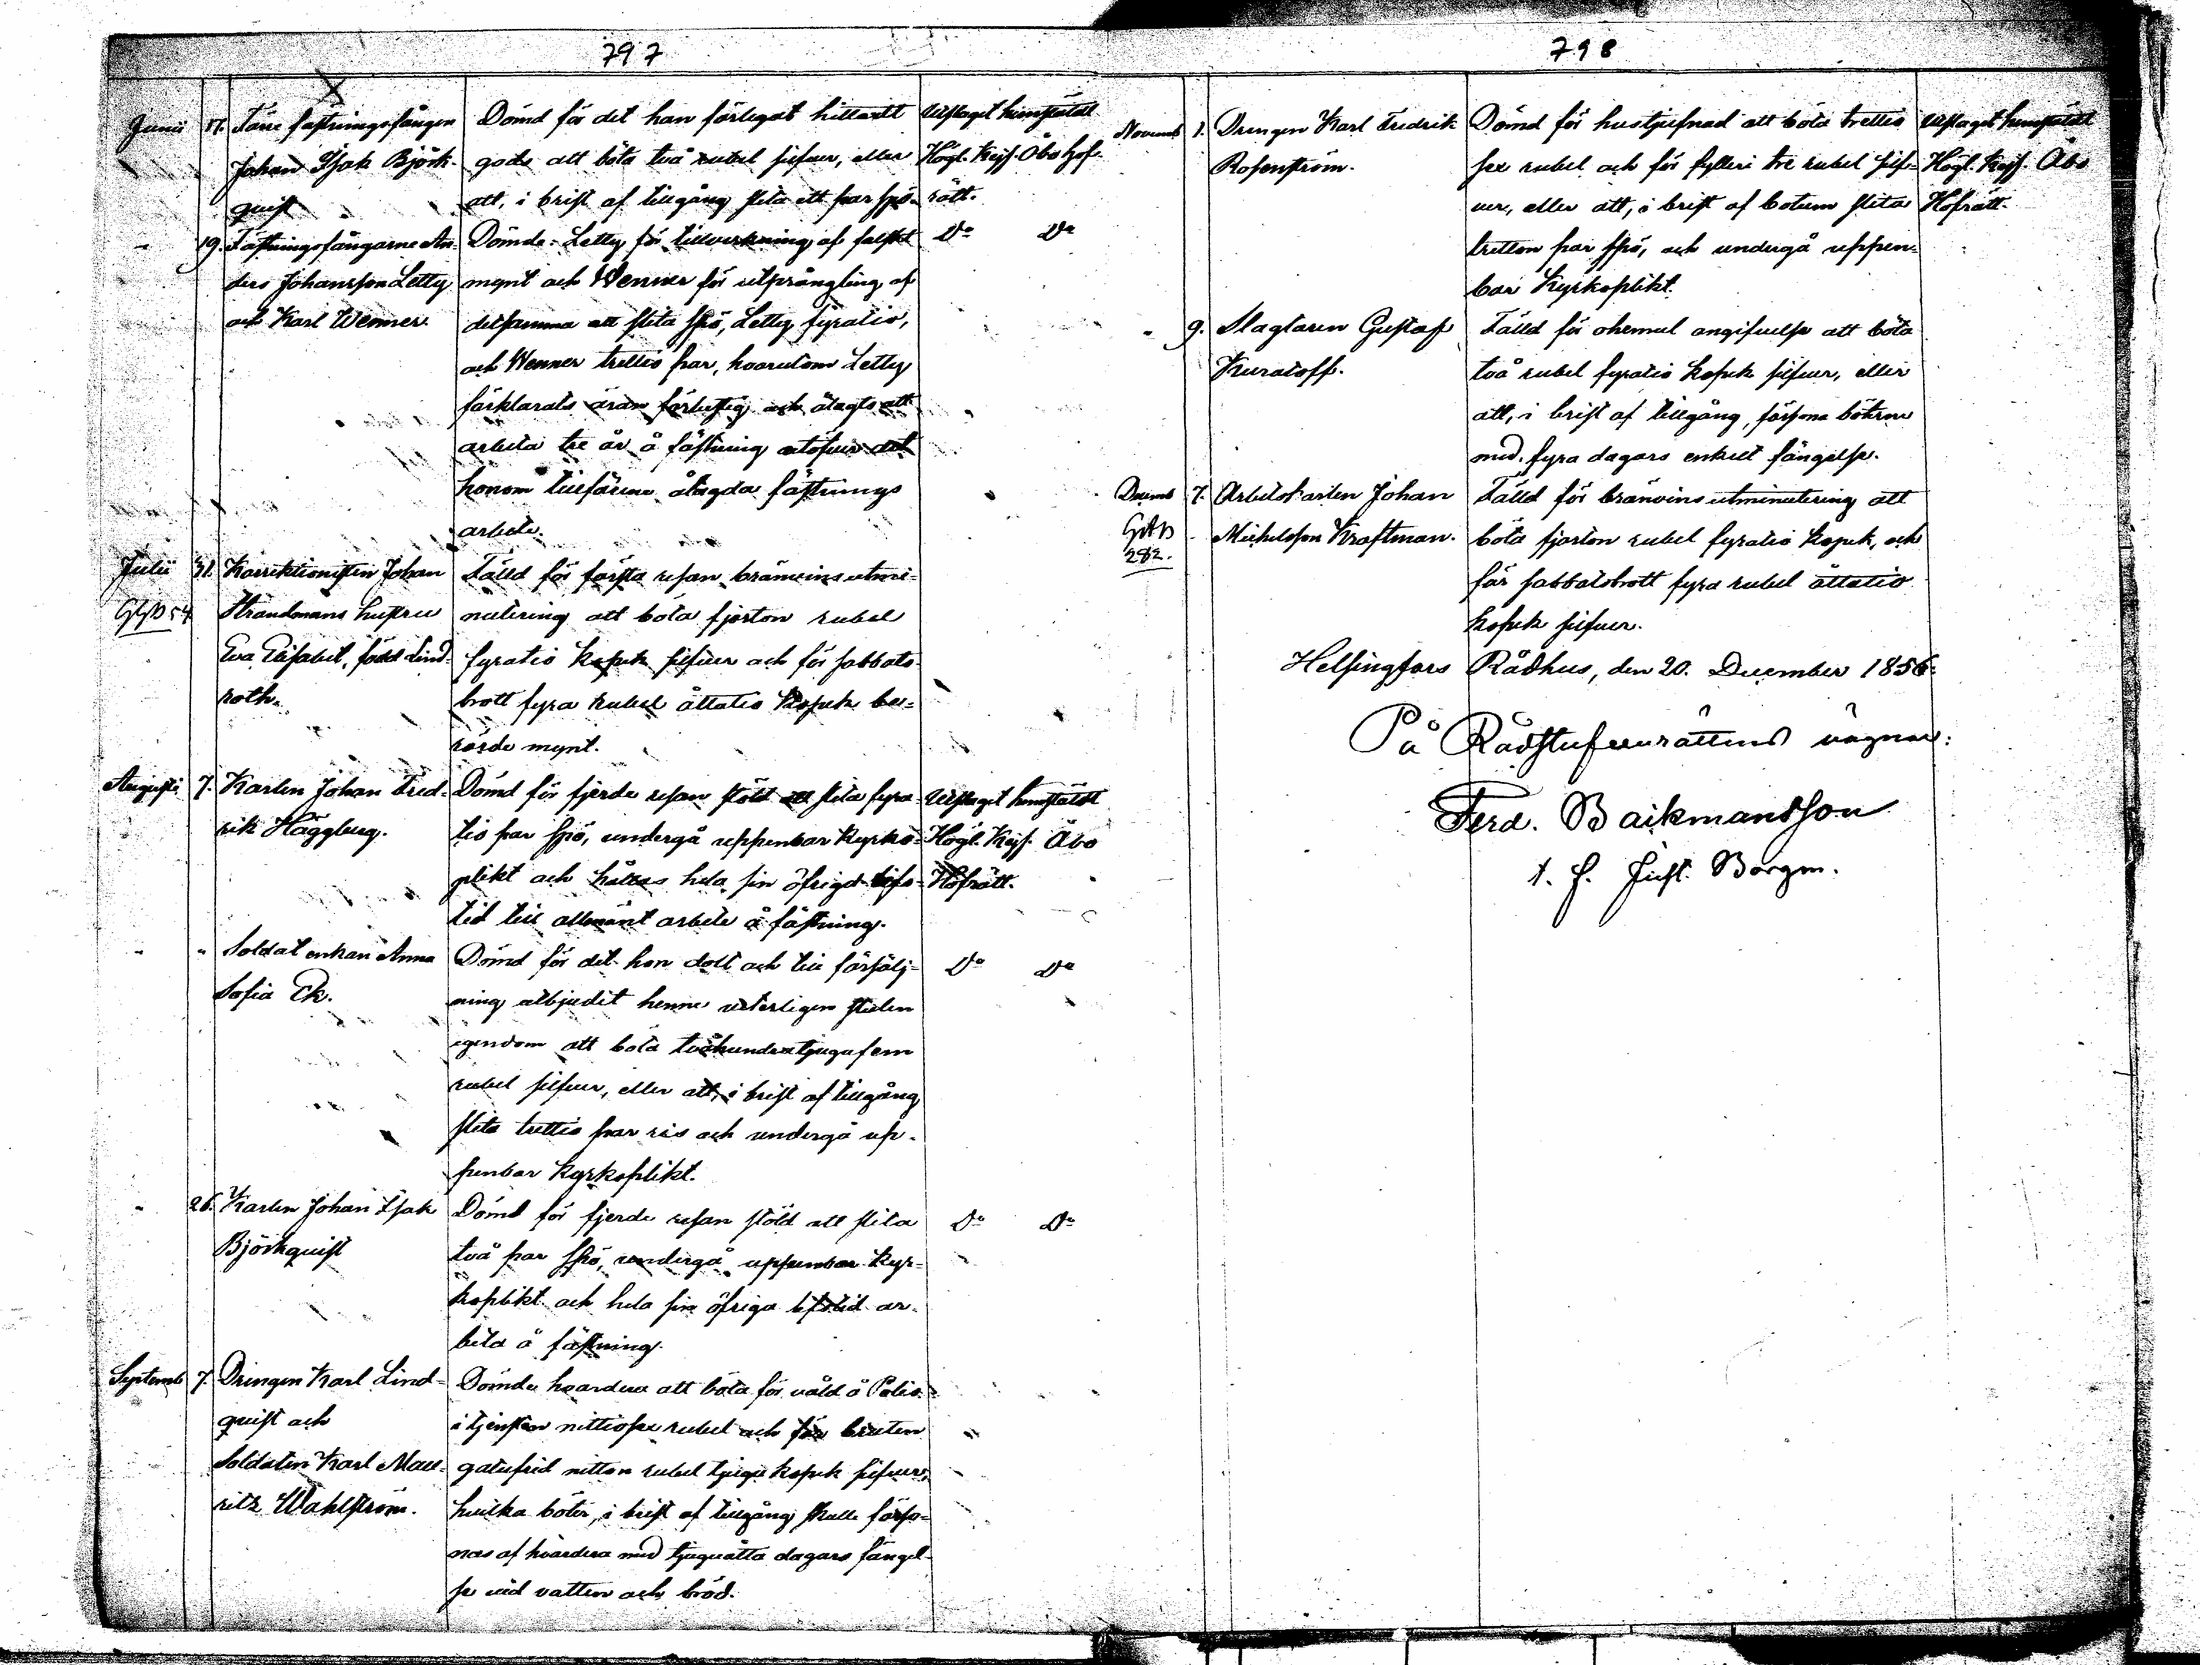 797
Junii 17. Förre fästningsfången
Johan Isak Björk-
quist
Dömd för det han förlegat hittadt
gods att böta två rubel silfver, eller
att, i brist af tillgång slita ett par spö.
Utslaget hemstäldt
Högl. Kejs. Åbo Hof-
rätt.
19. Fästningsfångarne An-
ders Johansson Letty
och Karl Wenner
Dömde: Letty för tillverkning af falskt
mynt och Wenner för utprångling af
detsamma att slita spö, Letty fyratio,
och Wenner trettio par, hvarutom Letty
förklarats äran förlustig och ålagts att
arbeta tre år å fästning utöfver det
honom tillförene ålagda fästnings
arbete.
Do Do
Julii 31. Korrektionisten Johan
Strandmans hustru
Eva Elisabet, född Lind-
roth.
Fälld för första resan bränvins utmi-
nutering att böta fjorton rubel
fyratio kopek silfver och för sabbats-
brott fyra rubel åttatio kopek be-
rörde mynt.
Augusti 7. Karlen Johan Fred-
rik Häggberg.
Dömd för fjerde resan stöld att slita fyra-
tio par spö, undergå uppenbar kyrko-
plikt och hållas hela sin öfriga lifs-
tid till allmänt arbete å fästning.
Utslaget hemstäldt
Högl. Kejs. Åbo
Hofrätt.
" " Soldat enkan Anna
Sofia Ek.
Dömd för det hon dolt och till försälj-
ning utbjudit henne veterligen stulen
egendom att böta tvåhundratjugufem
rubel silfver, eller att, i brist af tillgång
slita trettio par ris och undergå up-
penbar kyrkoplikt.
Do Do
" 26. Karlen Johan Isak
Björkquist
Dömd för fjerde resan stöld att slita
två par spö, undergå uppenbar kyr-
koplikt och hela sin öfriga lifstid ar-
beta å fästning.
Do Do
Septemb 7. Drengen Karl Lind-
quist och
Soldaten Karl Mau-
ritz Wahlström.
Dömde hvardera att böta för våld å Polis
i tjensten nittiosex rubel och för bruten
gatufrid nitton rubel tjugu kopek silfver,
hvilka böter, i brist af tillgång skulle förso-
nas af hvardera med tjuguåtta dagars fängel-
se vid vatten och bröd.
798
Novemb 1. Drengen Karl Fredrik
Rosenström.
Dömd för hustjufnad att böta trettio
sex rubel och för fylleri tre rubel silf-
ver, eller att, i brist af botum slita
tretton par spö, och undergå uppen-
bar Kyrkoplikt.
Utslaget hemstäldt
Högl. Kejs. Åbo
Hofrätt.
" 9. Slagtaren Gustaf
Kuratoff.
Fälld för ohemul angifvelse att böta
två rubel fyratio kopek silfver, eller
att, i brist af tillgång, försona böterne
med fyra dagars enkelt fängelse.
Decemb 7. Arbetskarlen Johan
282. Michelsson Kraftman.
Fälld för bränvins utminutering att
böta fjorton rubel fyratio kopek, och
för sabbatsbrott fyra rubel åttatio
kopek silfver.
Helsingfors Rådhus, den 20. December 1856.
På Rådstufvurättens vägnar:
Ferd. Baikmansson
t. f. Just. Borgm.